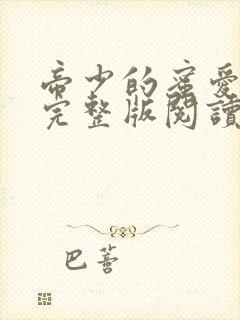 帝少的蜜愛
完整版閱讀
巴蕾